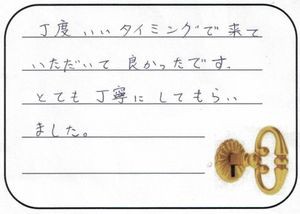 丁度いいタイミングで来て
いただいて良かったです.
とても丁寧にしてもらい
ました。